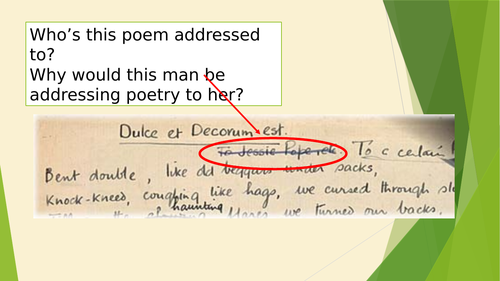 Who's this poem addressed
to?
Why would this man be
addressing poetry to her?
Dulce et Decorum est.
To Jessie Pope etc. To a certain
Bent double, like old beggars under sacks,
Knock-kneed, coughing like hags, we cursed through sl
haunting
we turned our backs.